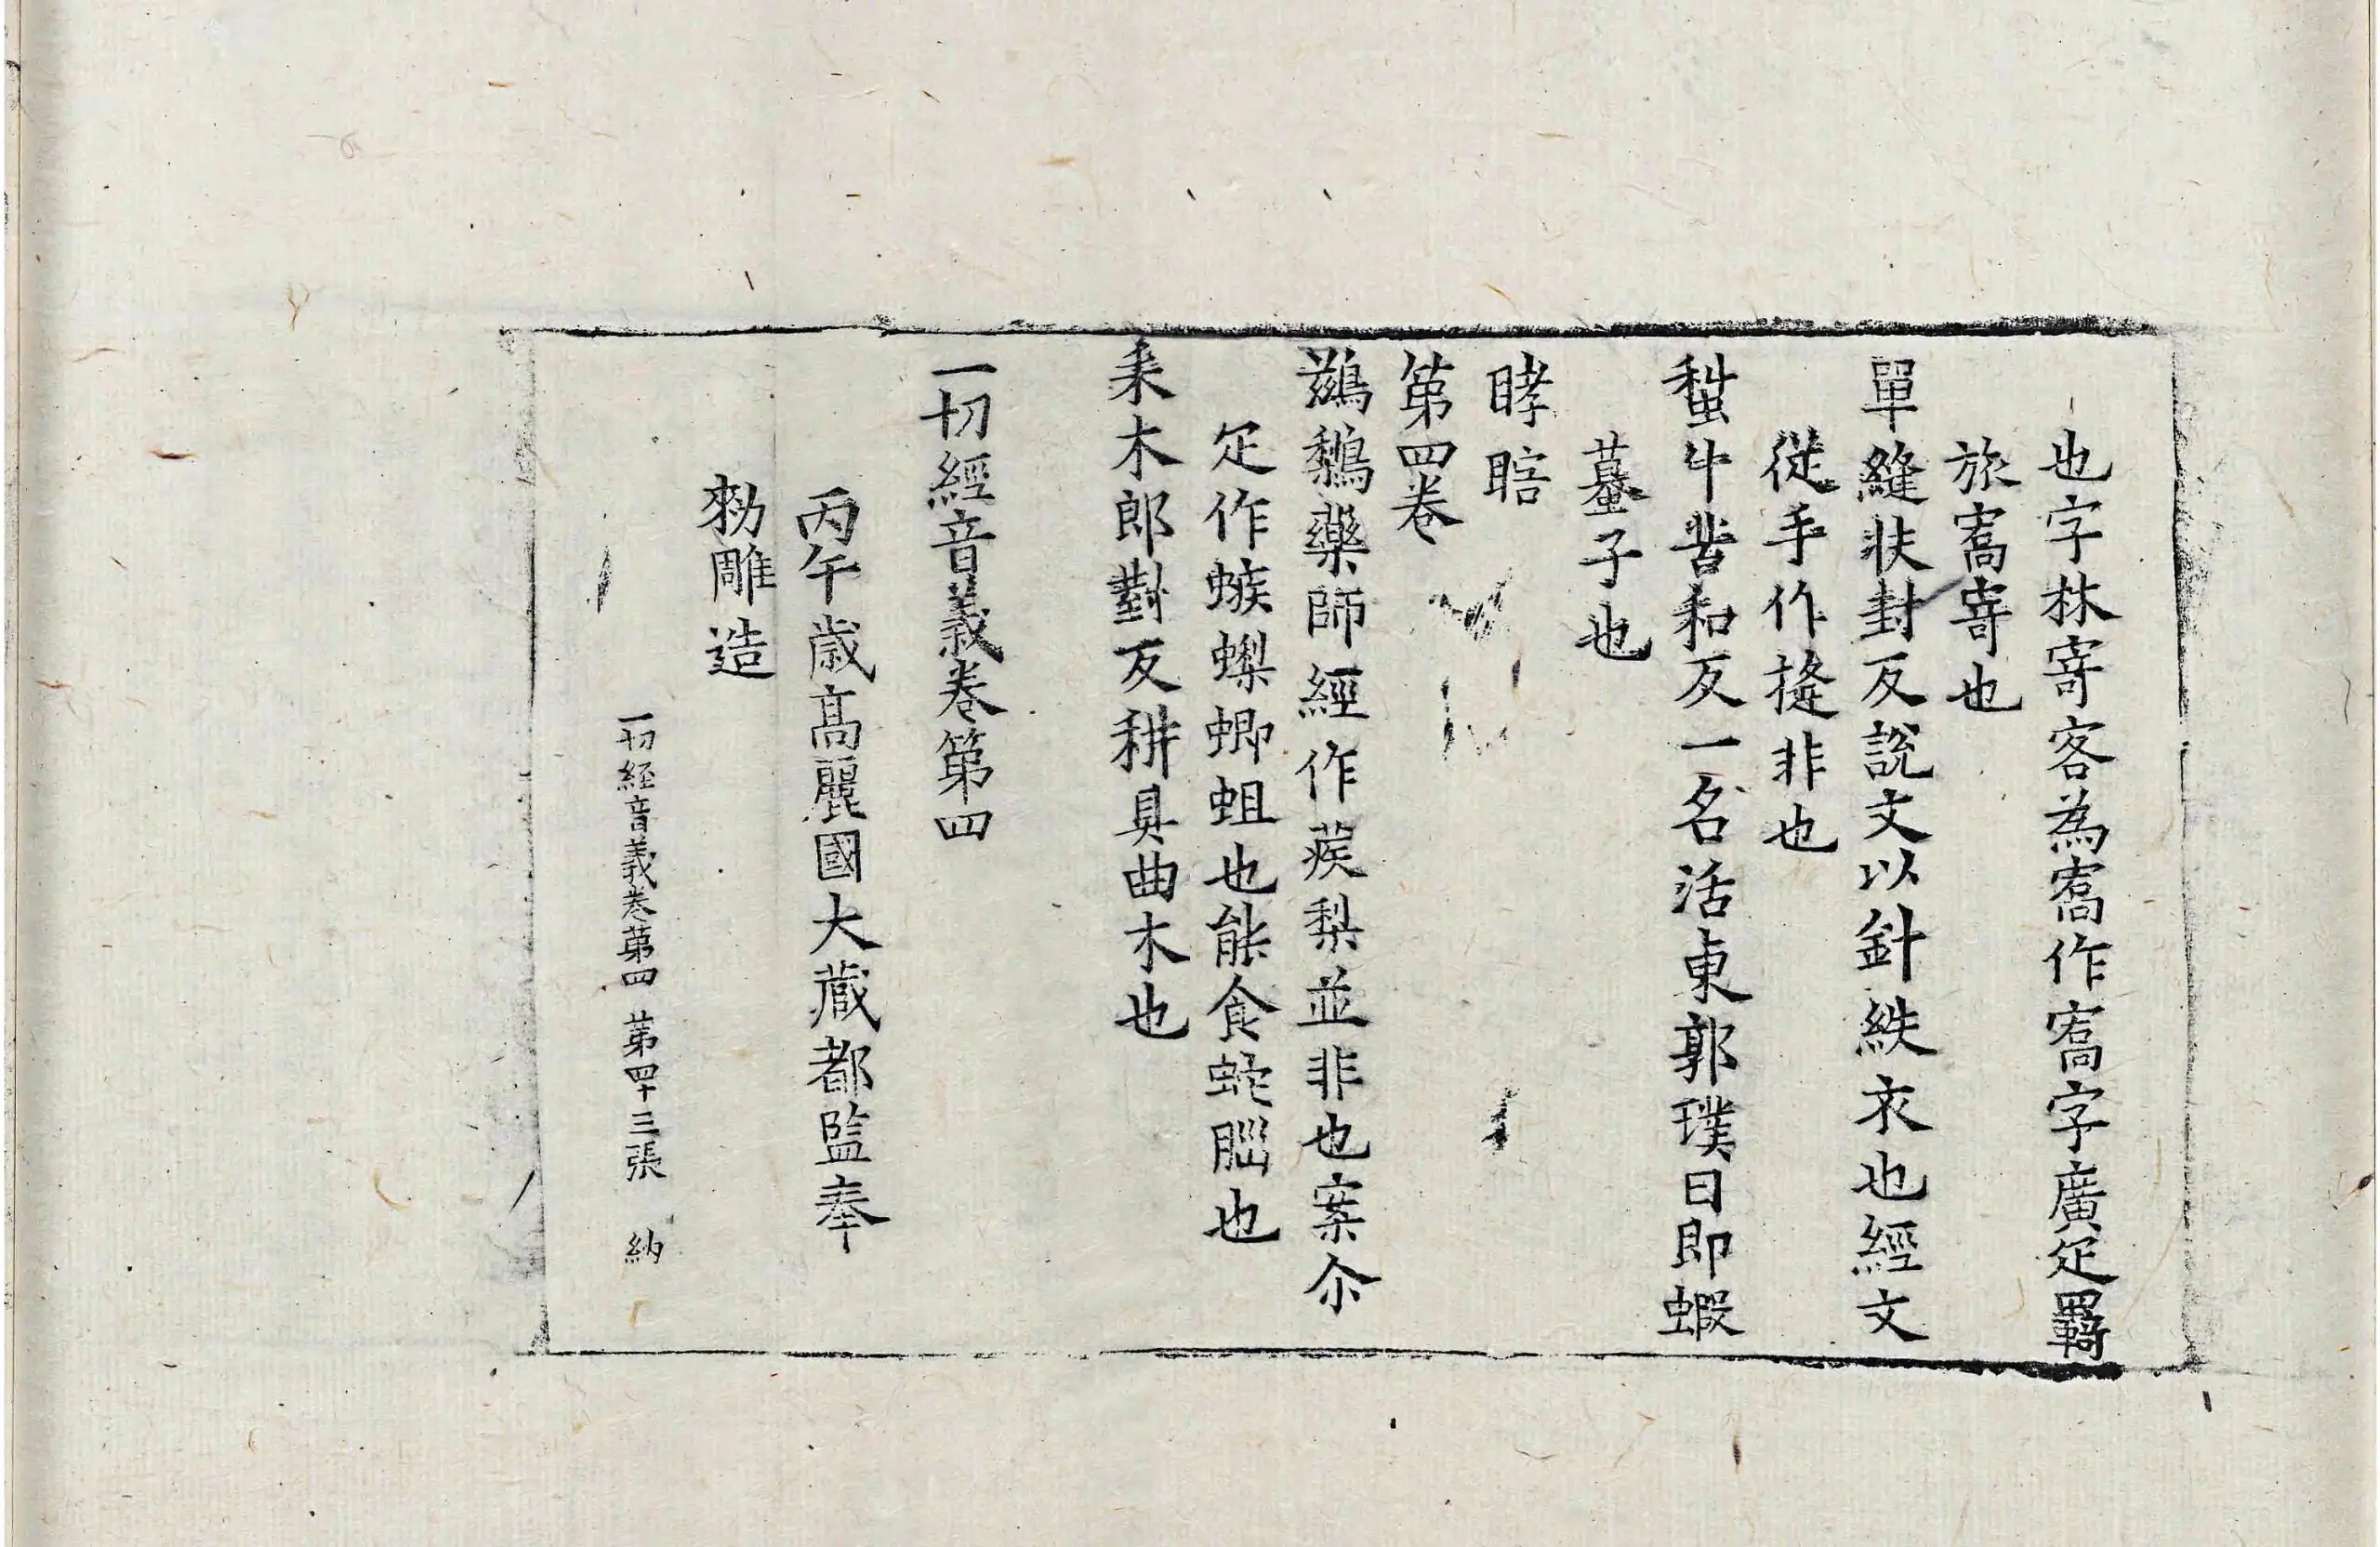 也字林寄客為寯作寯字廣疋羇
旅寯寄也
單縫扶封反說文以針紩衣也經文
從手作摓非也
蚪苦和反一名活東郭璞曰即蝦
蟇子也
睝暗
第四卷
鷀鷜藥師經作蒺梨並非也案尒
疋作蝍蛆也能食虵𦛁也
耒木郎對反耕具曲木也
一切經音義卷第四
丙午歲高麗國大藏都監奉
勑雕造
一切經音義卷第四 第四十三張 納